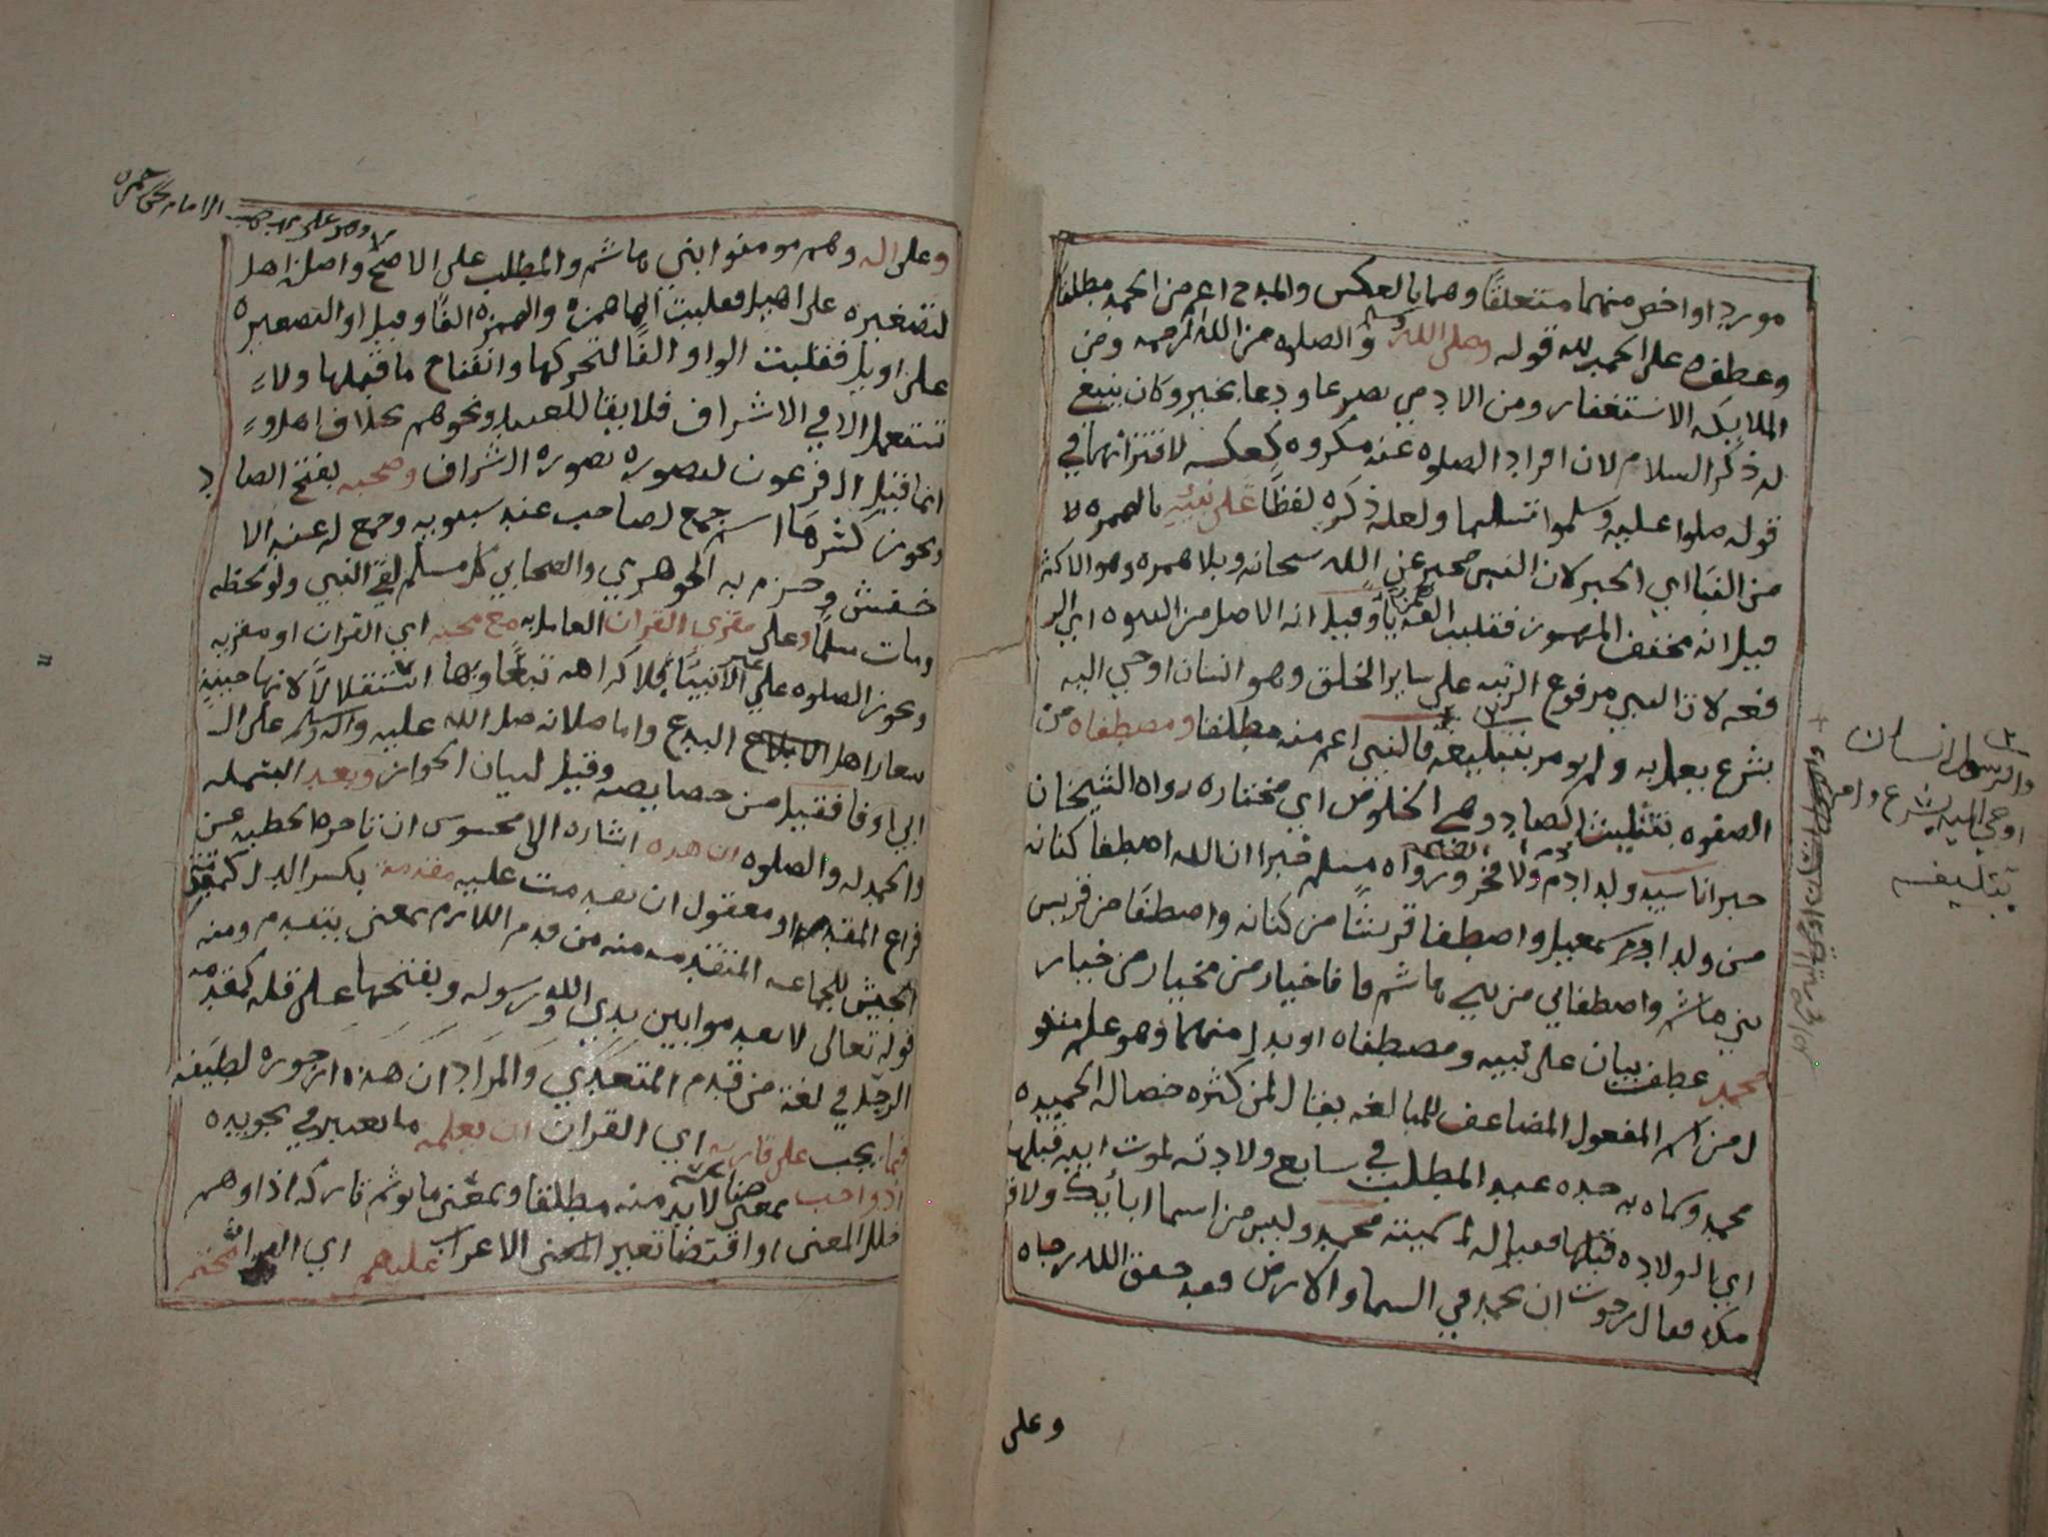 موردا واخص منهما متعلقًا وهما بالعكس والمدح اعم من الحمد مطلقا
وعطفه على الحمد لله قوله وصلى الله وسلم والصلوه من الله الرحمه ومن
الملايكه الاستغفار ومن الادمي تضرعا ودعا بخير وكان ينبغ
له ذكر السلام لان افراد الصلوه عنه مكروه كعكسه لاقترانهما في
قوله صلوا عليه وسلموا تسليما ولعله ذكره لفظًا على نبيه بالهمزه لا
من النبا اي الخبر لان النبي مخبر عن الله سبحانه وبلا همزه وهو الاكثر
قيل انه مخفف المهموز فقلبت الهمزه ياً وقيل انه الاصل من النبوه اي الر
فعه لان النبي مرفوع الرتبه على ساير الخلق وهو انسان اوحي اليه
بشرع يعمل به ولم يومر بتبليغه فالنبي اعم منه مطلقا ومصطفاه من
الصفوه بتثليث الصاد وهي الخلوص اي مختاره رواه الشيخان
خبر انا سيد ولد ادم ولا فخر ورواه مسلم خبر ان الله اصطفا كنانه
من ولد اسمعيل واصطفا قريشًا من كنانه واصطفا من قريش
بني هاشم واصطفاني من بني هاشم فانا خيار من خيار من خيار
محمد عطف بيان على نبيه ومصطفاه او بدل منهما وهو علم منقو
ل من اسم المفعول المضاعف للمبالغه يقال لمن كثره خصاله الحميده
محمد وسماه به جده عبد المطلب في سابع ولادته لموت ابيه قبلها
اي الولاده قبلها فقيل له لم سميته محمد وليس من اسما ابايك ولا قو
مك فقال رجوت ان يحمد في السما والارض فقد حقق الله رجاه
وعلى
والرسول انسان
اوحي اليه بشرع وامر
بتبليغه
وعلى اله وهم مومنوا بني هاشم والمطلب على الاصح واصله اهل
لتصغيره على اهيل فقلبت الها همزه والهمزه الفًا وقيل اول لتصغيره
على اويل فقلبت الواو الفًا لتحركها وانفتاح ما قبلها ولا
تستعمل الا في الاشراف فلا يقال للعبيد ونحوهم بخلاف اهل و
انما قيل ال فرعون لتصوره بصوره الاشراف وصحبه بفتح الصاد
ويجوز كسرها اسم جمع لصاحب عند سيبويه وجمع له عند الا
خفش وجزم به الجوهري والصحابي كل مسلم لقي النبي ولو لحظه
ومات مسلمًا وعلى مقري القران العامل به مع محبه اي القران او مقريه
ويجوز الصلوه على غير الانبيا بلا كراهه تبعًا وبها استقلالاً لانها حينئذ
شعار اهل البدع واما صلاته صلى الله عليه واله وسلم على ال
ابي اوفا فقيل من خصايصه وقيل لبيان الجواز وبعد البسمله
والحمدله والصلوه ان هذه اشاره الى محسوس ان تاخره الخطبه عن
فراغ المقدمه او معقول ان تقدمت عليه مقدمه بكسر الدال كمقدمه
الجيش للجماعه المتقدمه منه من قدم اللازم بمعنى يتقدم ومنه
قوله تعالى لا تقدموا بين يدي الله ورسوله وبفتحها على قله كمقدمه
الرحل في لغة من قدم المتعدي والمراد ان هذه ارجوزه لطيفه
فيما يجب على قاريه اي القران ان يعلمه مما يعتبر في تجويده
اذ واجب بمعنى لا بد منه مطلقا وبمعنى ما يوثم تاركه اذا اوهم
خلل المعنى او اقتضا تغيير الاعراب عليهم اي القرا محتم